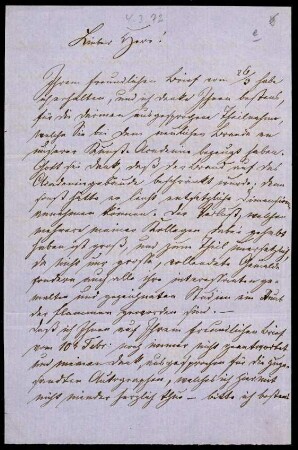 4.3.72
Lieber Herr!
Ihren freundlichen Brief vom 26/3 habe
ich erhalten, und ich danke Ihnen bestens,
für die darinnen ausgesprochene Theilnahme,
welche Sie bei dem neulichen Brande an
unserer Kunst-Academie bezeugt haben.
Gott sei Dank, daß der Brand auf das
Academiegebäude beschränkt wurde, denn
sonst hätte er leicht entsetzliche Dimensionen
annehmen können. Der Verlust, welchen
mehrere meiner Collegen dabei gehabt
haben ist groß, und zum Theil unersetzlich,
da nicht nur große vollendete Gemälde
sondern auch alle ihre interessanten ge-
malten und gezeichneten Studien ein Raub
der Flammen geworden sind. —
Daß ich Ihnen auf Ihren freundlichen Brief
vom 10t Febr. noch immer nicht geantwortet
und meinen Dank, ausgesprochen für die zuge-
sandten Autographen, welches ich hiermit
nicht minder herzlich thue — bitte ich bestens